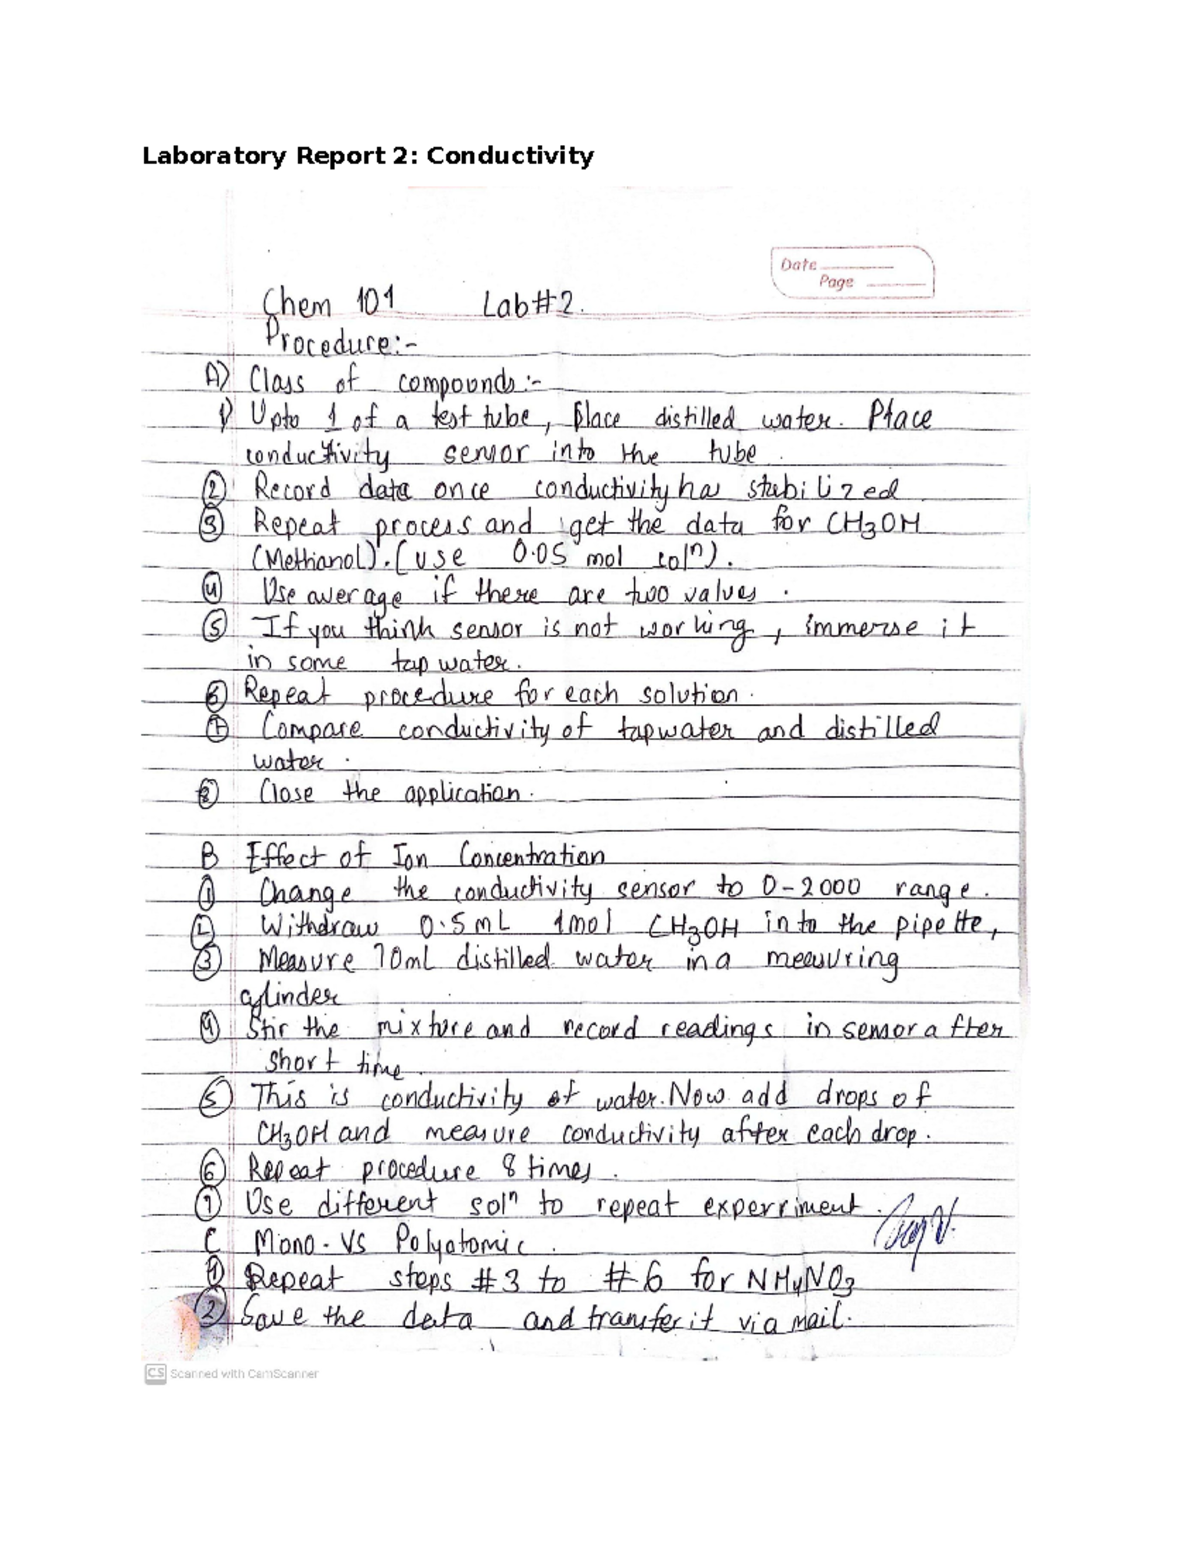 Laboratory Report 2: Conductivity
Date
Page
Chem 101 Lab#2.
Procedure:-
A) Class of compounds:-
1) Upto 1 of a test tube, place distilled water. Place
conductivity sensor into the tube.
② Record data once conductivity has stabilized
③ Repeat process and get the data for CH3OH
(Methanol).(use 0.05 mol solⁿ).
④ Use average if there are two values.
⑤ If you think sensor is not working, immerse it
in some tap water.
⑥ Repeat procedure for each solution.
⑦ Compare conductivity of tapwater and distilled
water.
⑧ Close the application.
B Effect of Ion Concentration
① Change the conductivity sensor to 0-2000 range.
② Withdraw 0.5mL 1mol CH3OH into the pipette,
③ Measure 70mL distilled water in a measuring
cylinder
④ Stir the mixture and record readings in sensor after
short time.
⑤ This is conductivity of water. Now add drops of
CH3OH and measure conductivity after each drop.
⑥ Repeat procedure 8 times.
⑦ Use different solⁿ to repeat experriment.
C Mono- VS Polyatomic.
① Repeat steps #3 to #6 for NH4NO3
② Save the data and transfer it via mail.
CS Scanned with CamScanner